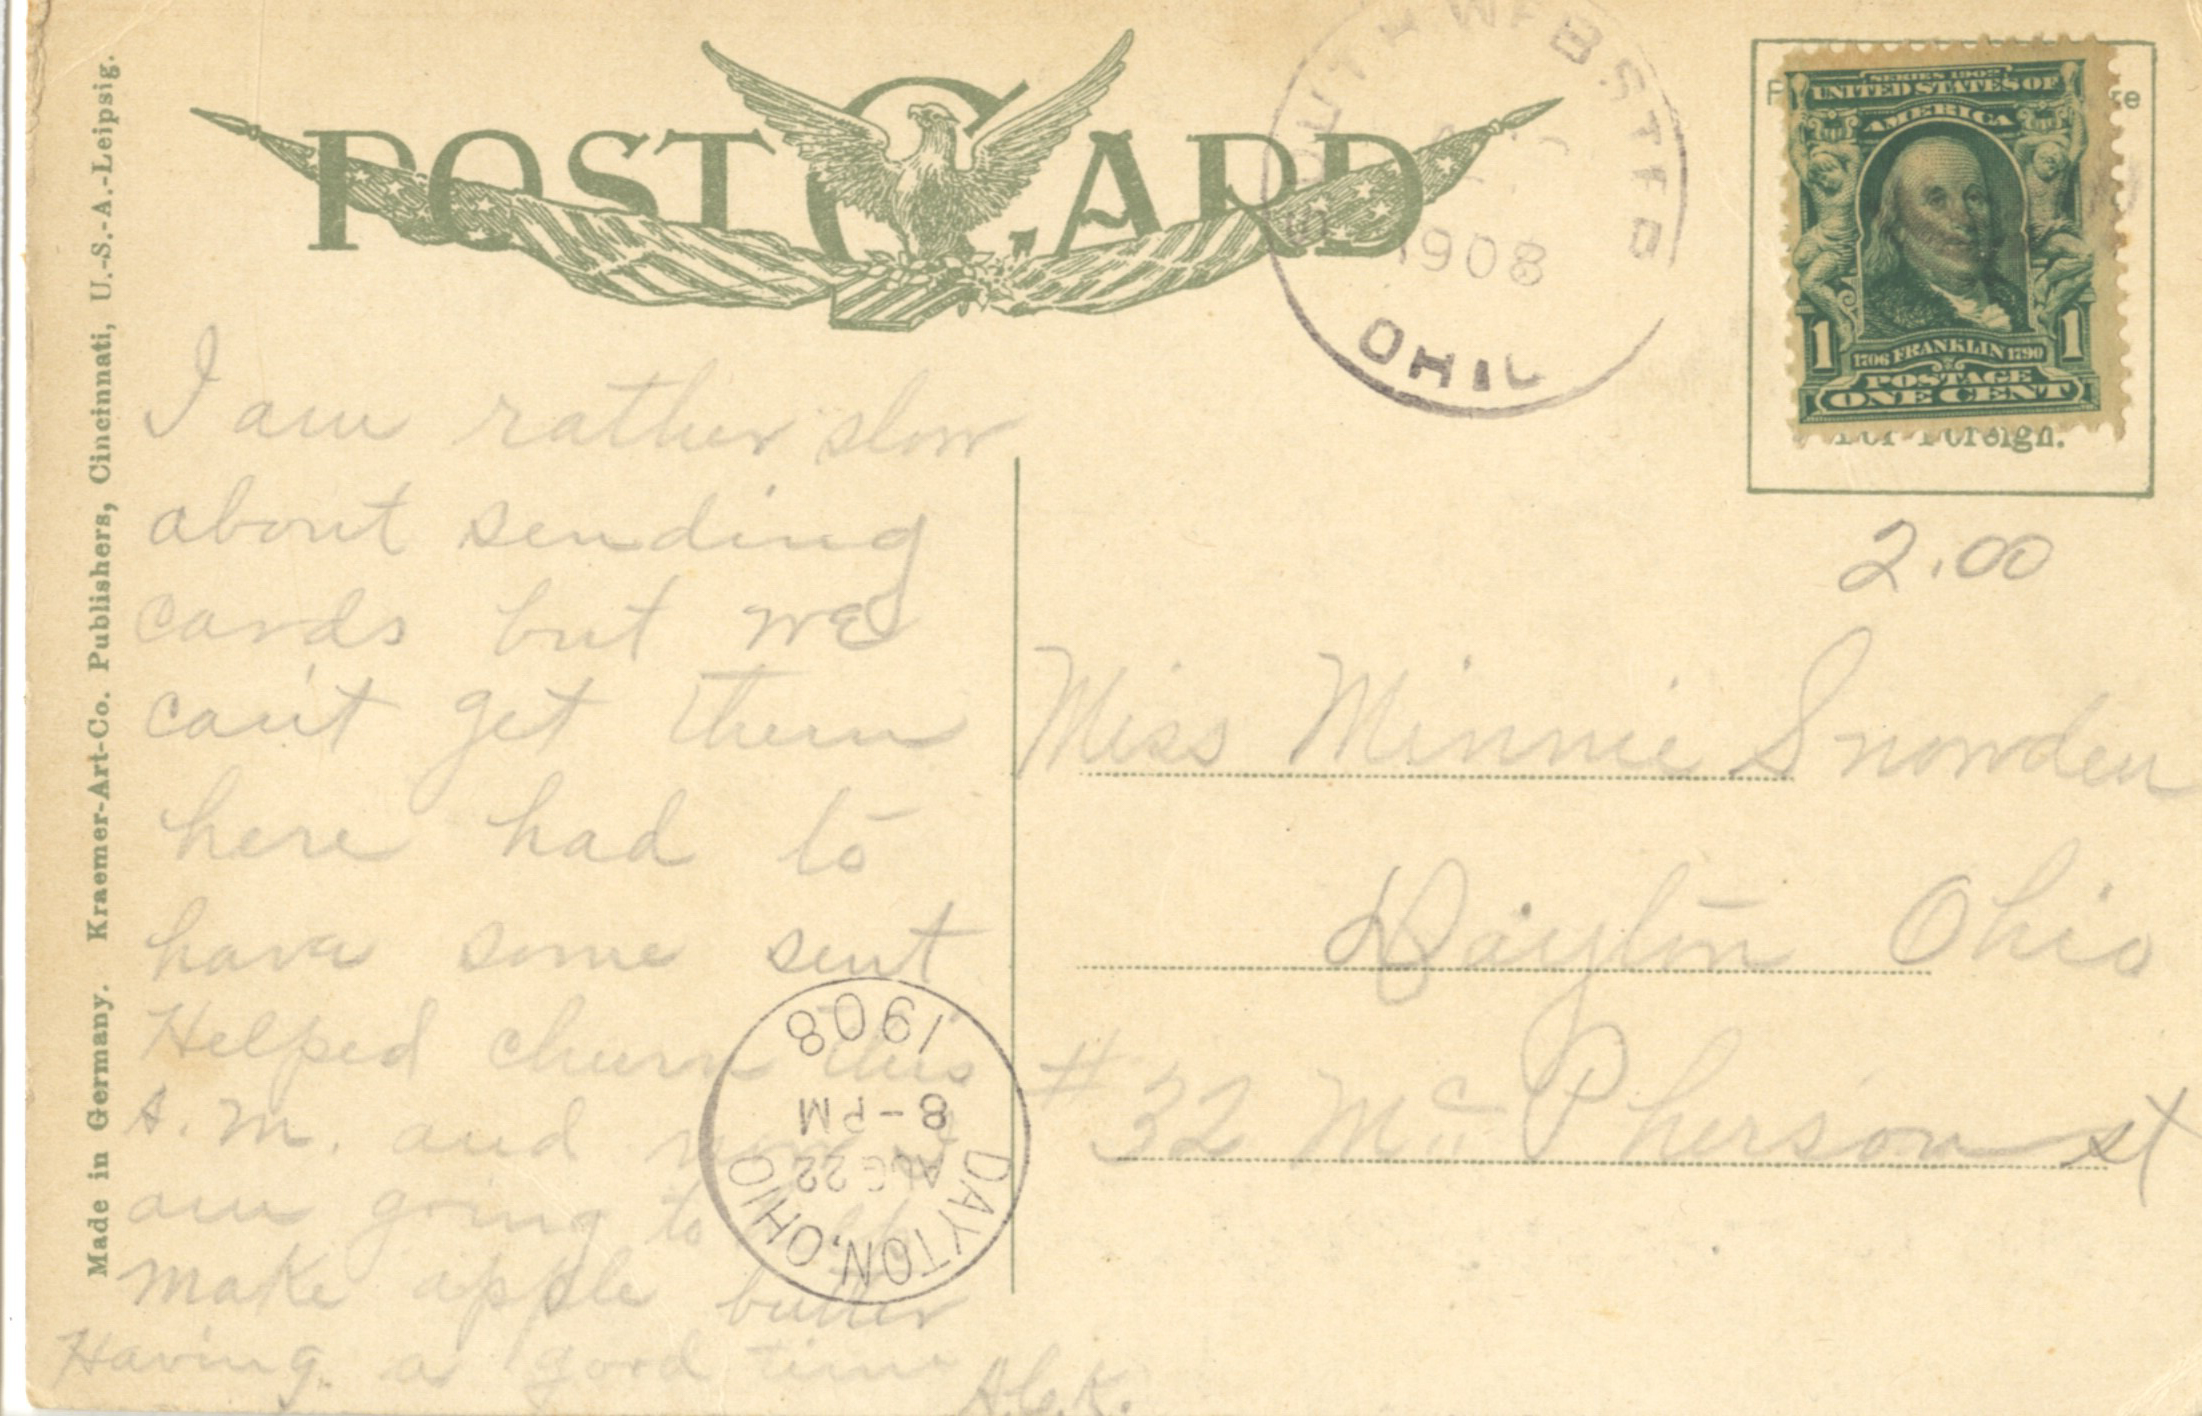 POST CARD
SOUTH WEBSTER
1908
OHIO
SERIES 1902
UNITED STATES OF
AMERICA
1 1
1706 FRANKLIN 1790
POSTAGE
ONE CENT
For Foreign.
2.00
Made in Germany. Kraemer-Art-Co. Publishers, Cincinnati, U.-S.-A.-Leipsig.
I am rather slow
about sending
cards but we
can't get them
here had to
have some sent
Helped churn this
A. M. and now I
am going to help
make apple butter
Having a good time
A.C.K.
Miss Minnie Snowden
Dayton Ohio
#32 Mc Pherson st
DAYTON, OHIO
AUG 22
8-PM
1908